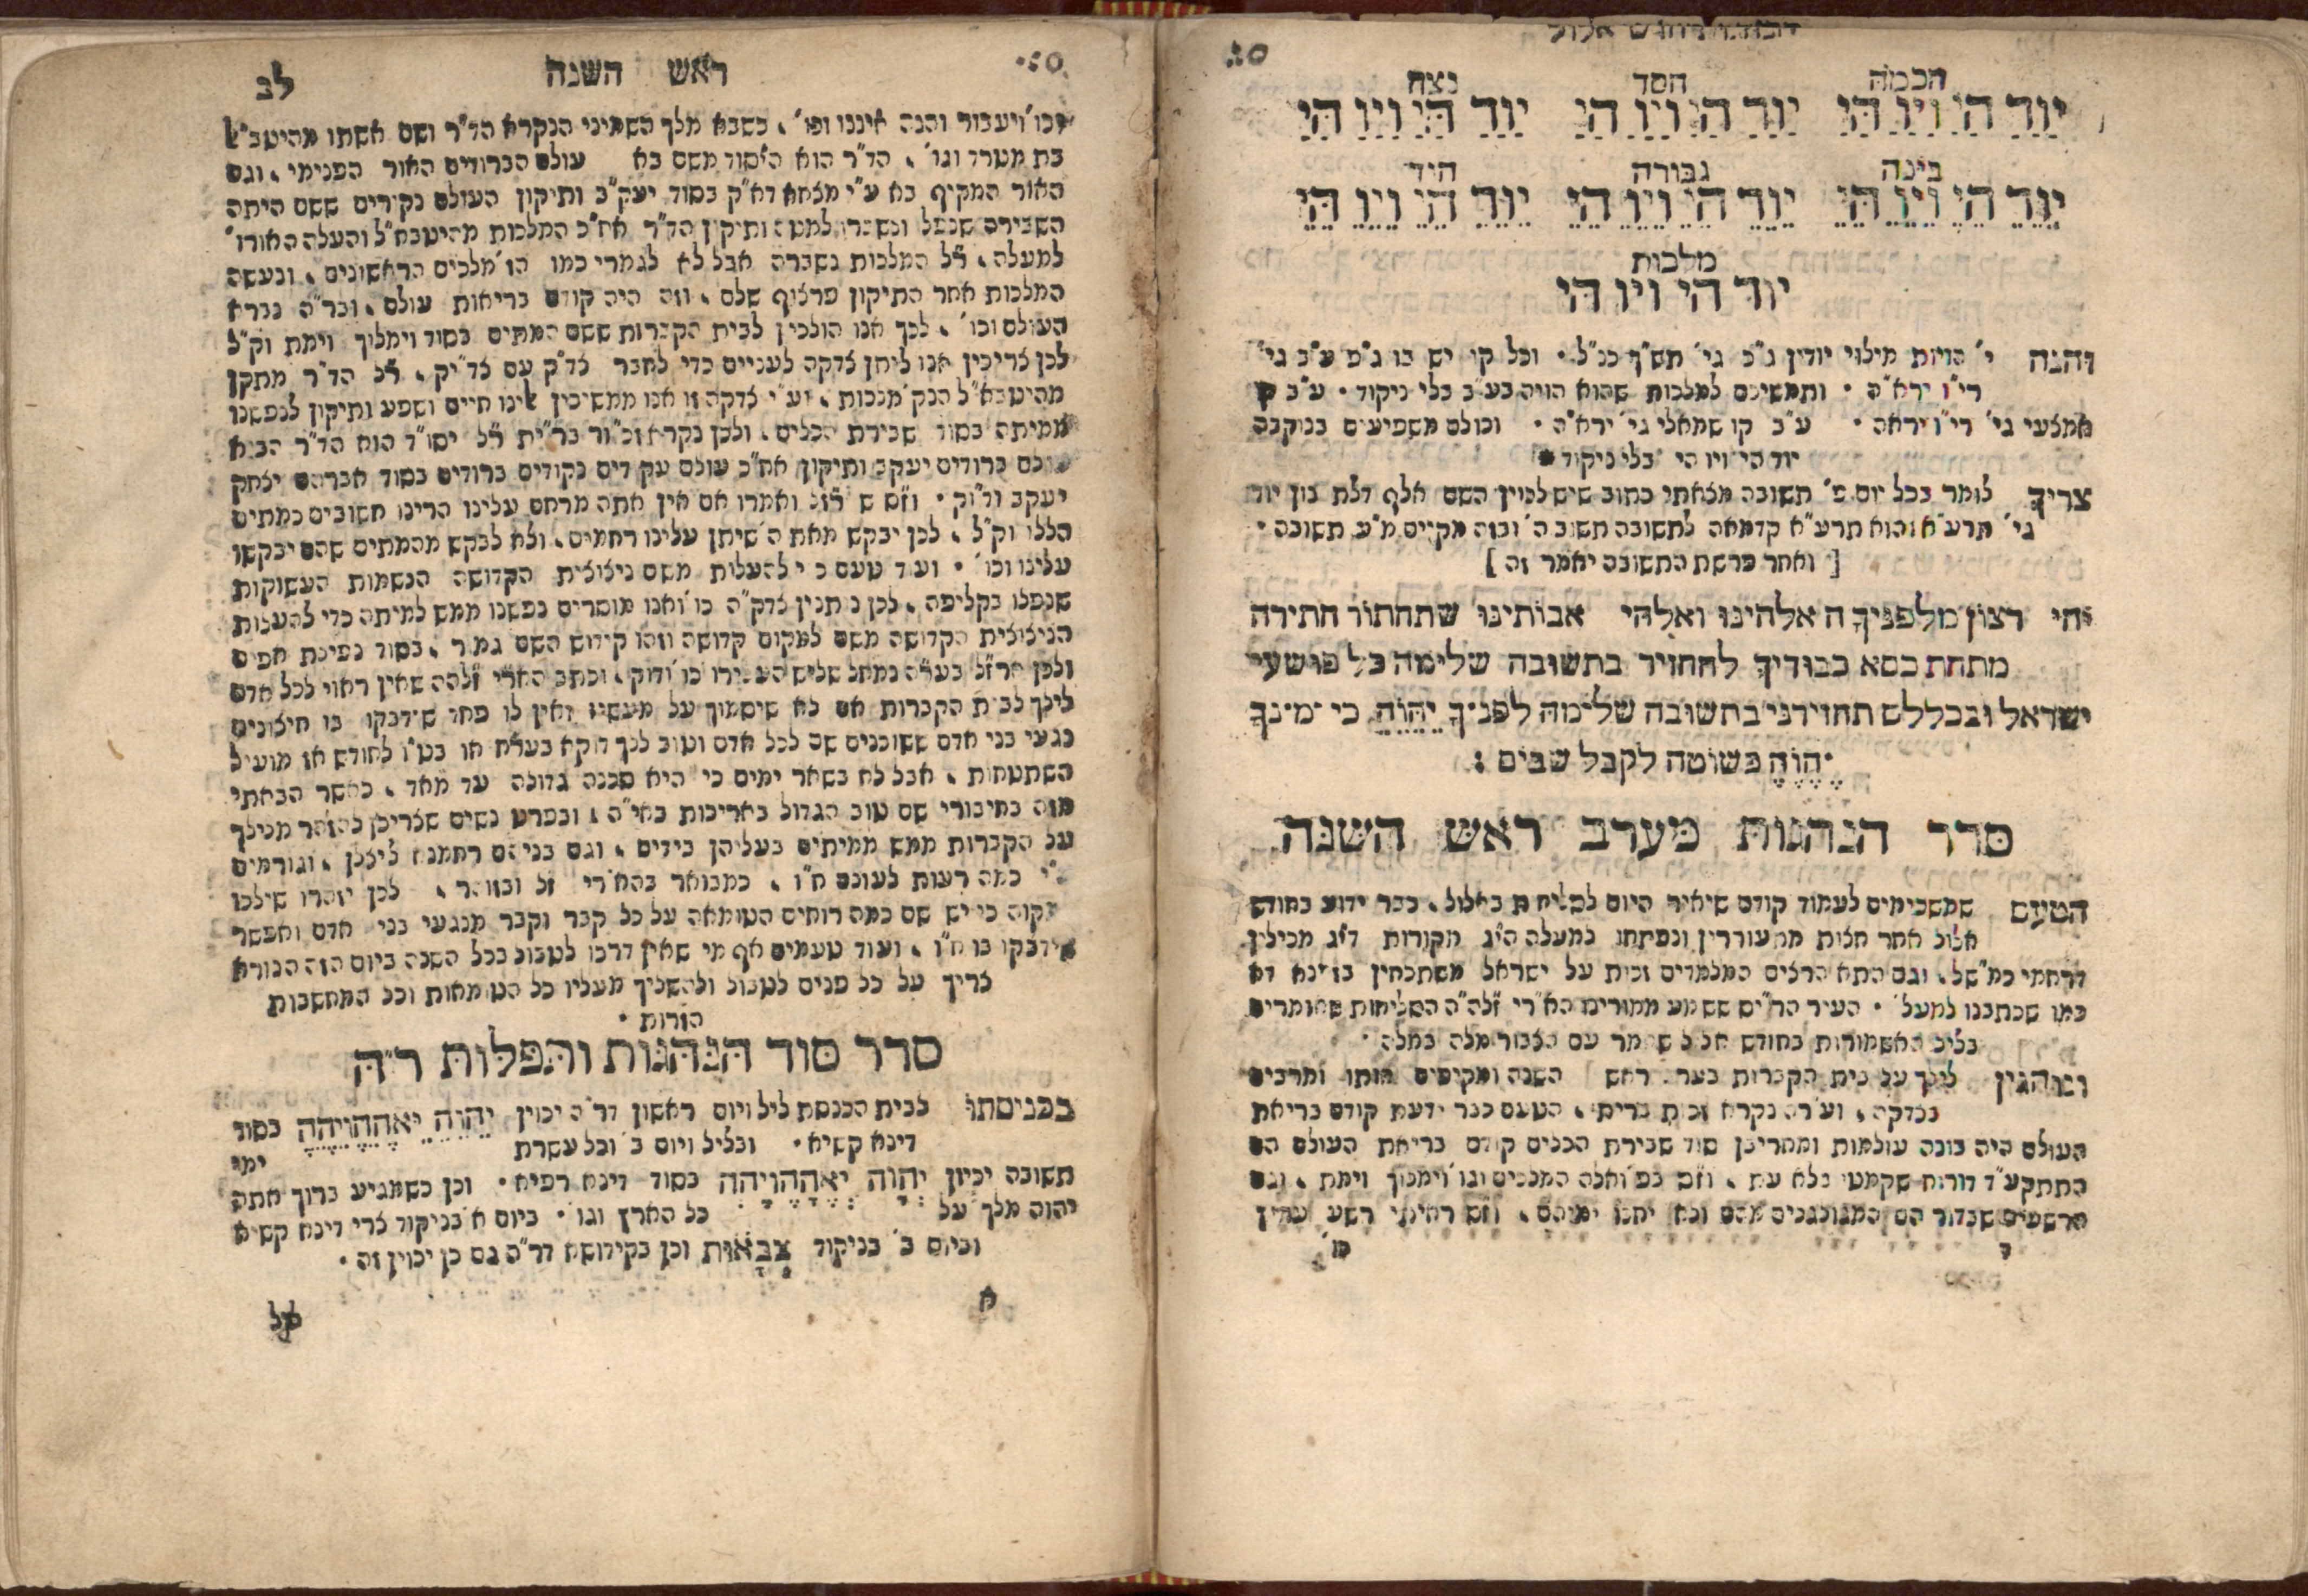 חכמה חסד נצח
יוד הי ויו הי יוד הי ויו הי יוד הי ויו הי
בינה גבורה הוד
יוד הי ויו הי יוד הי ויו הי יוד הי ויו הי
מלכות
יוד הי ויו הי
והנה י׳ הויות מילוי יודין ג״כ גי׳ תש״ך כנ״ל וכל קו יש בו ג״פ ע״ב גי׳
רי״ו ירא״ה ותמשיכם למלכות שהוא הויה בע״ב בלי ניקוד ע״ב קו
אמצעי גי׳ רי״ו יראה ע״ב קו שמאלי גי׳ ירא״ה וכולם משפיעים בנוקבה
יוד הי ויו הי בלי ניקוד
צריך לומר בכל יום פ׳ תשובה מצאתי כתוב שיש לכוין השם אלף דלת נון יוד
גי׳ תרע״א והוא תרע״א קדמאה לתשובה חשוב ה׳ ובזה מקיים מ״ע תשובה
[ ואחר פרשת התשובה יאמר זה ]
יהי רצון מלפניך ה אלהינו ואלהי אבותינו שתחתור חתירה
מתחת כסא כבודיך להחזיר בתשובה שלימה כל פושעי
ישראל ובכללם תחזירני בתשובה שלימה לפניך יהוה כי ימינך
יהוה פשוטה לקבל שבים :
סדר הנהגות מערב ראש השנה
הטעם שמשכימים לעמוד קודם שיאיר היום לסליחות באלול כבר ידוע בחודש
אלול אחר חצות מתעוררין ונפתחו למעלה הי״ג מקורות די״ג מכילין
דרחמי כמ״ש ל וגם התא הרצים המלמדים זכות על ישראל משתכחין בזימנא דא
כמו שכתבנו למעל׳ העיד הר״ים ששמע ממורינו הא״רי זלה״ה הסליחות שאומרים
בליל האשמורות בחודש אלול שיאמר עם הצבור מלה במלה
ונוהגין לילך על בית הקברות בער ראש השנה ומקיפים אותו ומרבים
בצדקה וער״ה נקרא זכות ברית הטעם כבר ידעת קודם בריאת
העולם היה בונה עולמות ומחריבן סוד שבירת הכלים קודם בריאת העולם הם
התתקע״ד דורות שקמטו בלא עת וזש בפ׳ ואלה המלכים וגו׳ וימלוך וימת וגם
הרשעים שבדור הם המגולגלים מהם ולא יחצו ימיהם וזש ראיתי רשע עריץ
ד כו׳
ראש השנה לב
וכו׳ ויעבור והנה איננו ופו׳ כשבא מלך השמיני הנקרא הד״ר ושם אשתו מהיטב״אל
בת מטרד וגו׳ הד״ר הוא היסוד משם בא עולם הברודים האור הפנימי וגם
האור המקיף בא ע״י מצחא דא״ק בסוד יעק״ב ותיקון העולם נקודים ששם היתה
השבירה שנפל ונשברו למטה ותיקון הד״ר אח״כ המלכות מהיטבא״ל והעלה האורו׳
למעלה ר״ל המלכות נשברה אבל לא לגמרי כמו הז׳ מלכים הראשונים ונעשה
המלכות אחר התיקון פרצוף שלם וזה היה קודם בריאות עולם ובר״ה נברא
העולם וכו׳ לכך אנו הולכין לבית הקברות ששם המתים בסוד וימליך וימת וק״ל
לכן צריכין אנו ליתן צדקה לעניים כדי לחבר צד״ק עם צד״יק ר״ל הד״ר מתקן
מהיטבא״ל הנק׳ מלכות וע״י צדקה זו אנו ממשיכין אלינו חיים ושפע ותיקון לנפשנו
ממיתה בסוד שבירת הכלים ולכן נקרא זכ״ור בר״ית ר״ל יסו״ד הוא הד״ר הביא
עולם ברודים יעקב ותיקון אח״כ עולם עקודים נקודים ברודים בסוד אברהם יצחק
יעקב וד״וק וז״ש ש רז״ל ואמרו אם אין אתה מרחם עלינו הרינו חשובים כמתים
הללו וק״ל לכן יבקש מאת ה׳ שיתן עלינו רחמים ולא לבקש מהמתים שהם יבקשו
עלינו וכו׳ ועוד טעם כי להעלות משם ניצוצית הקדושה הנשמות העשוקות
שנפלו בקליפה לכן נותנין צדק״ה כו׳ ואנו מוסרים נפשנו ממש למיתה כדי להעלות
הניצוצית הקדושה משם למקום קדושה וזהו קידוש השם גמור בסוד נפילת אפים
ולכן ארז״ל בער״ה נמחל שליש העבירו׳ כו׳ ודוק וכתב הארי זלהה שאין ראוי לכל אדם
לילך לבית הקברות אם לא שיסמוך על מעשיו ואין לו פחד שידבקו בו חיצונים
נגעי בני אדם ששוכנים שם לכל אדם וטוב לכך דוקא בער״ח או בט״ו לחודש אז מועיל
השתטחות אבל לא בשאר ימים כי היא סכנה גדולה עד מאד כאשר הבאתי
מזה בחיבורי שם טוב הגדול באריכות בא״יה ובפרט נשים שצריכן להזהר מלילך
על הקברות ממש ממיתים בעליהן בידים וגם בניהם רחמנא ליצלן וגורמים
כמה רעות לעולם ח״ו כמבואר בהא״רי זל ובזוהר לכן יזהרו שילכו
מקוה כי יש שם כמה רוחים הטומאה על כל קבר וקבר מנגעי בני אדם ואפשר
שידבקו בו ח״ו ועוד טעמים אף מי שאין דרכו לטבול בכל השנה ביום הזה הנורא
צריך על כל פנים לטבול ולהשליך מעליו כל הטומאות וכל המחשבות
הזרות
סדר סוד הנהגות והתפלות ר״ה
בכניסתו לבית הכנסת ליל ויום ראשון דר״ה יכוין יהוה יאההויהה בסוד
דינא קשיא ובליל ויום ב׳ ובכל עשרת ימי
תשובה יכוין יהוה יאההויהה בסוד דינא רפיא וכן כשמגיע ברוך אתה
יהוה מלך על כל הארץ וגו׳ ביום א׳ בניקוד צרי דינא קשיא
וביום ב׳ בניקוד צבאות וכן בקידושא דר״ה גם כן יכוין זה
א אל